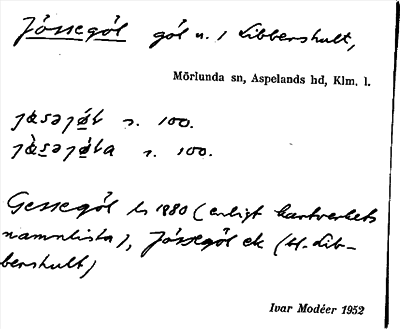 Jössegöl göl n. / Libbershult,
Mörlunda sn, Aspelands hd, Klm. l.
s. 100.
s. 100.
Gessegöl ls 1880 (enligt kartverkets
namnlista), Jössegöl ek (H. Lib-
bershult)
Ivar Modéer 1952